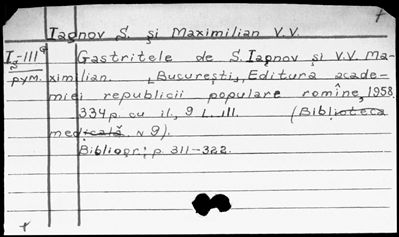 Iagnov S. și Maximilian V.V.
I-III⁹ Gastritele de S. Iagnov și V.V. Ma-
рум. ximilian. [București], Editura acade-
miei republicii populare romîne, 1958.
334 p. cu il., 9 L. ill. (Biblioteca
medicală. N 9).
Bibliogr.: p. 311-322.